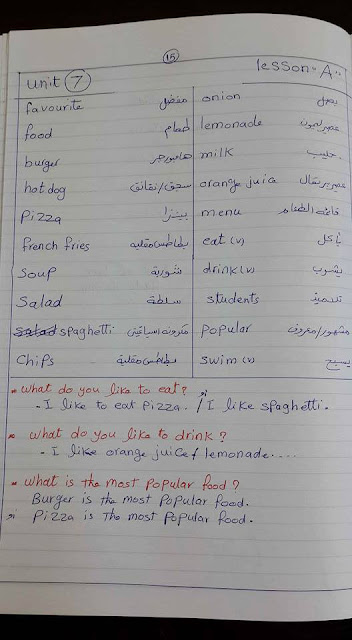 15
unit 7 lesson "A"
favourite مفضل onion بصل
food طعام lemonade عصير ليمون
burger هامبورجر milk حليب
hot dog سجق/نقانق orange juice عصير برتقال
Pizza بيتزا menu قائمة الطعام
french fries بطاطس مقلية eat (v) يأكل
Soup شوربة drink (v) يشرب
Salad سلطة students تلاميذ
spaghetti مكرونة اسباغيتي Popular مشهور/معروف
Chips بطاطس مقلية swim (v) يسبح
* What do you like to eat?
- I like to eat Pizza. / أو I like spaghetti.
* What do you like to drink?
- I like orange juice / lemonade....
* What is the most Popular food?
Burger is the most Popular food.
أو Pizza is the most Popular food.